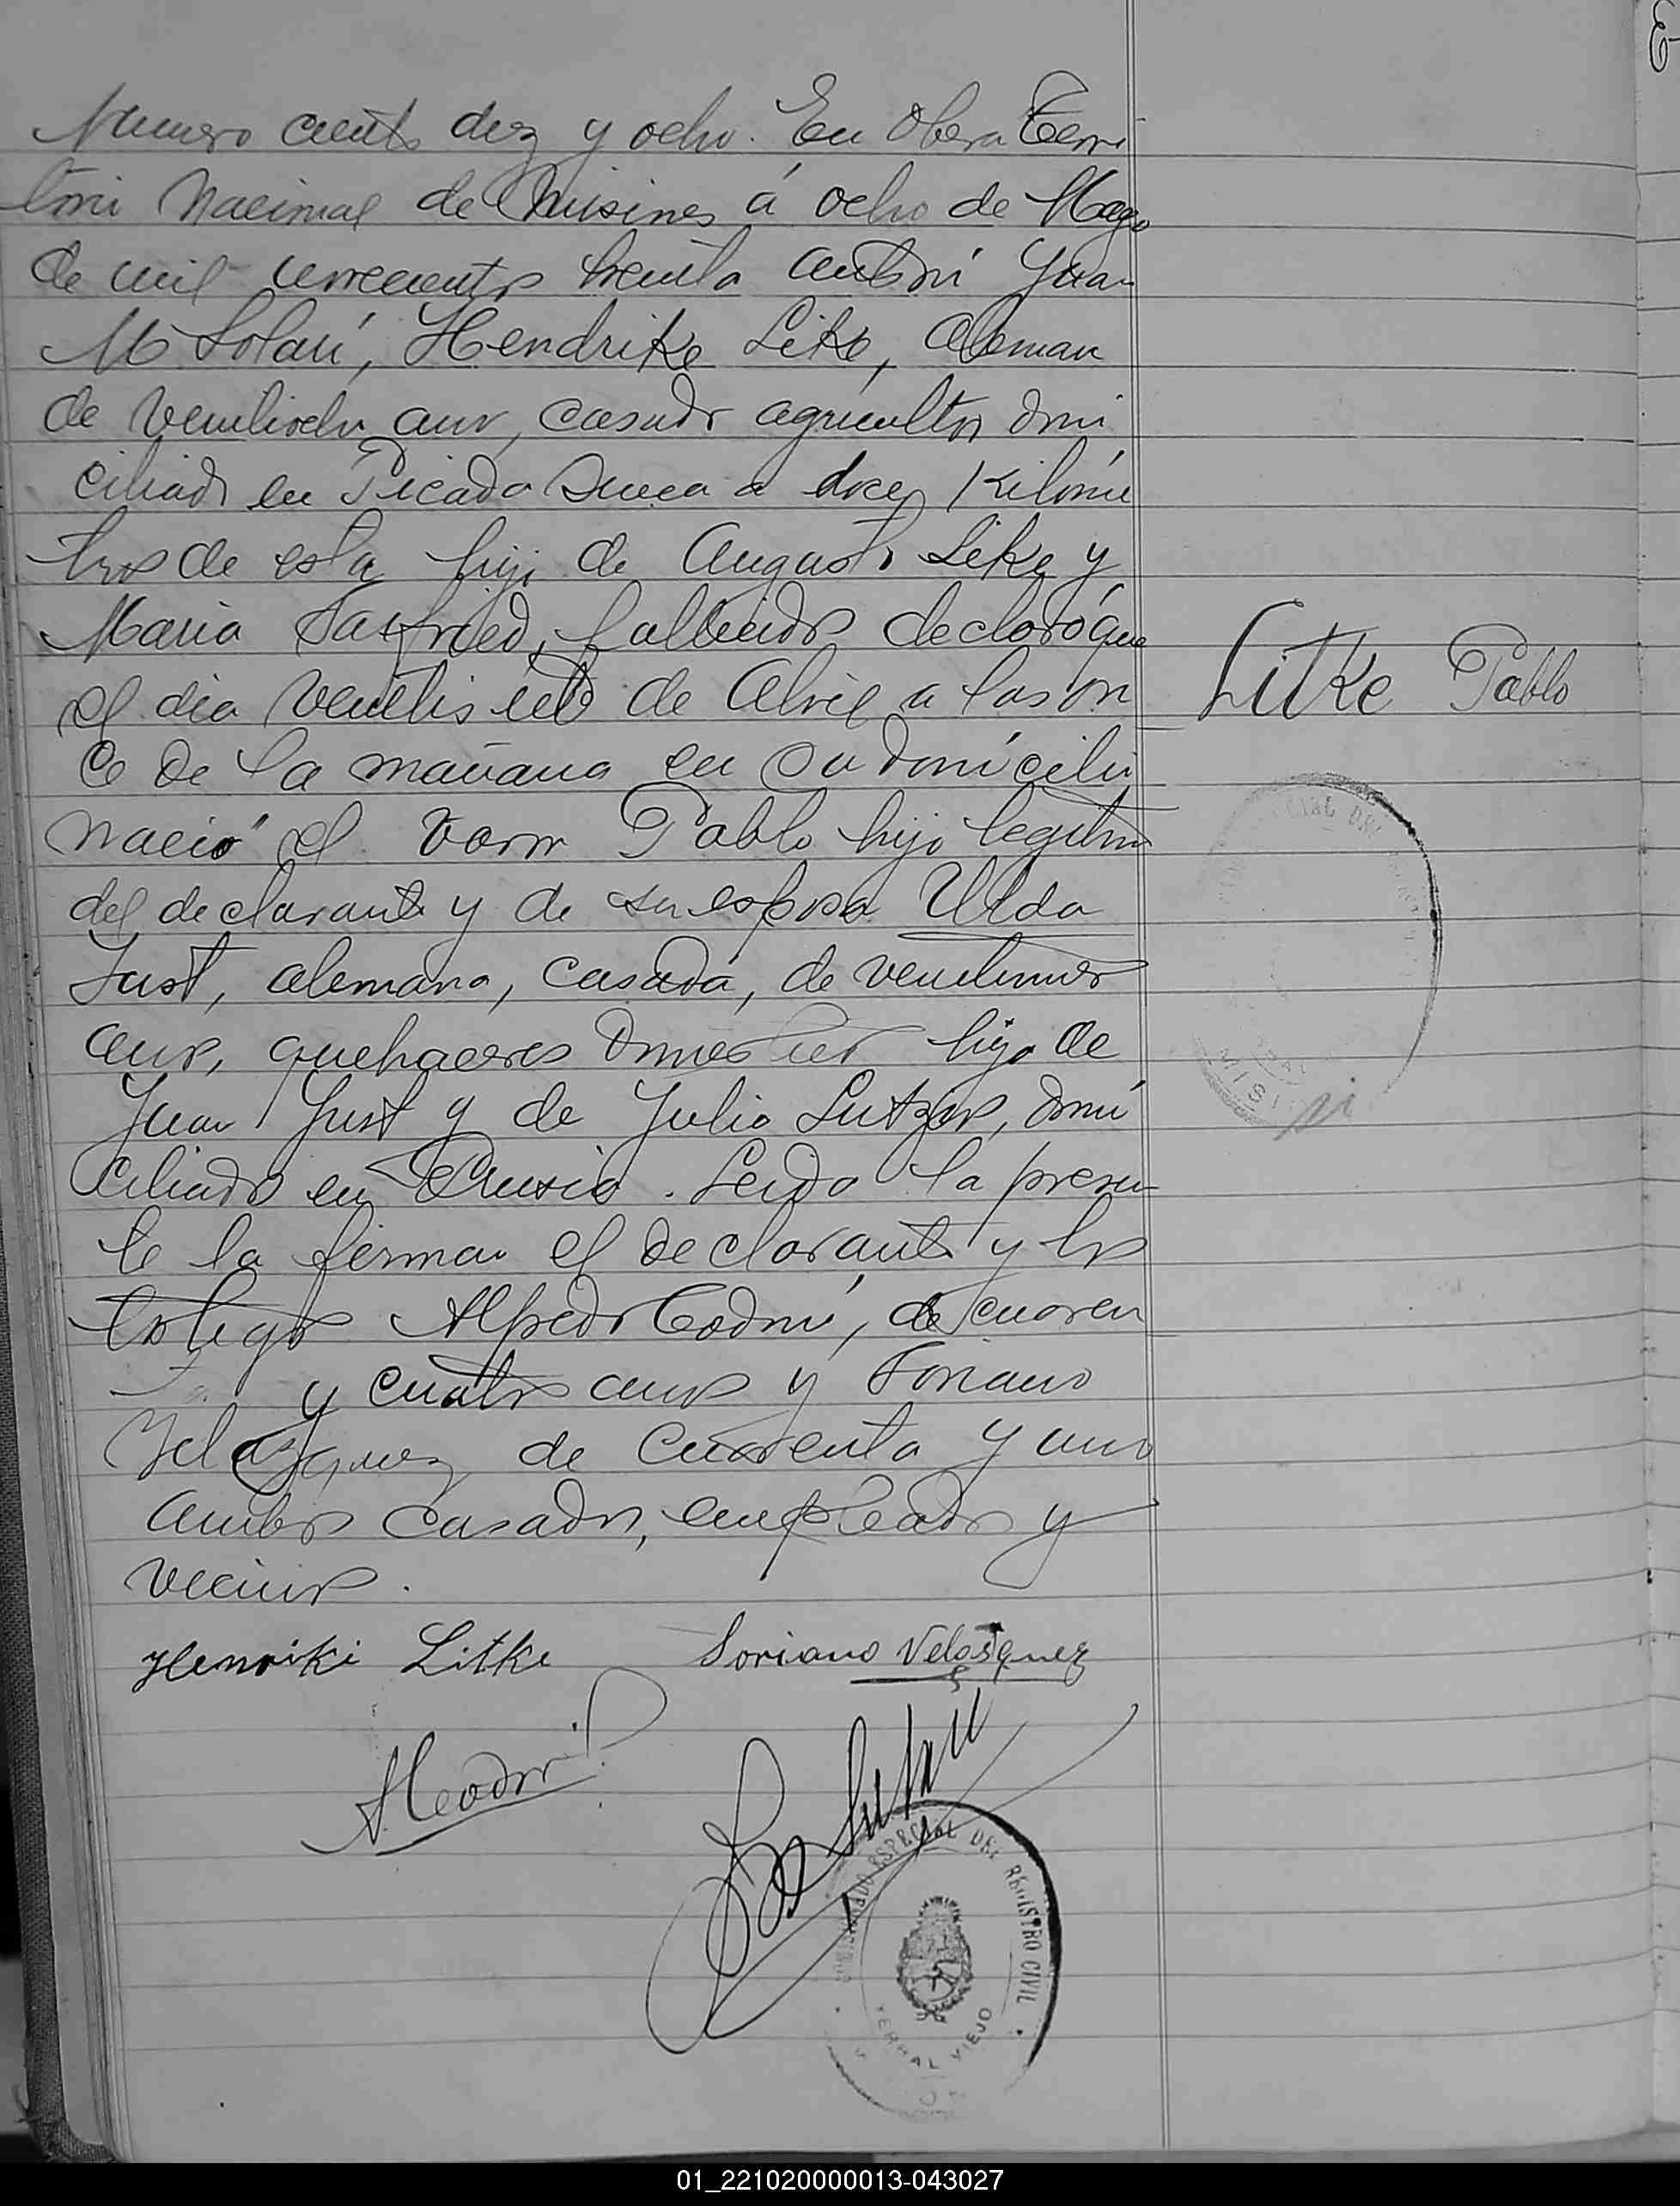 Numero ciento diez y ocho. En Obera Terri
torio Nacional de Misiones á ocho de Mayo
de mil novecientos treinta ante mi Juan
M Solari, Hendrike Like, aleman
de veintiocho años, casado agricultor domi
ciliado en Picada Sueca a doce Kilóme
tros de esta hijo de Augusto Like y
Maria fallecidos declaró que
el dia veintisiete de Abril a las on
ce de la mañana en su domicilio
nació el varon Pablo hijo legitimo
del declarante y de su esposa Ulda
Just, alemana, casada, de veintinueve
años, quehaceres domesticos hija de
Juan Just y de Julia domi
ciliados en Rusia. Leida la presen
te la firman el declarante y los
testigos Alfredo Codoni, de cuaren
ta y cuatro años y Soriano
Velazquez de cuarenta y uno
ambos casados, empleados y
vecinos.
Litke Pablo
Henriki Litke Soriano Velasquez
ESPECIAL DEL REGISTRO CIVIL
YERBAL VIEJO
01_221020000013-043027